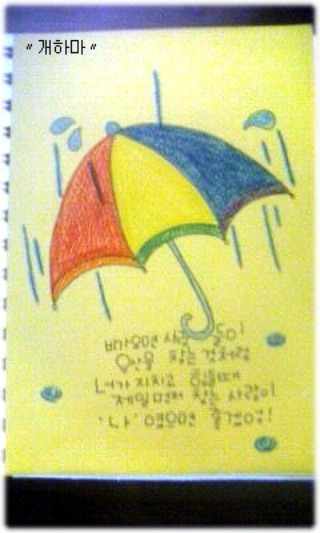 〃 개하마 〃
비가오면 사람들이
우산을 찾는 것처럼
너가 지치고 힘들때
제일먼저 찾는 사람이
'나' 였으면 좋겠어!